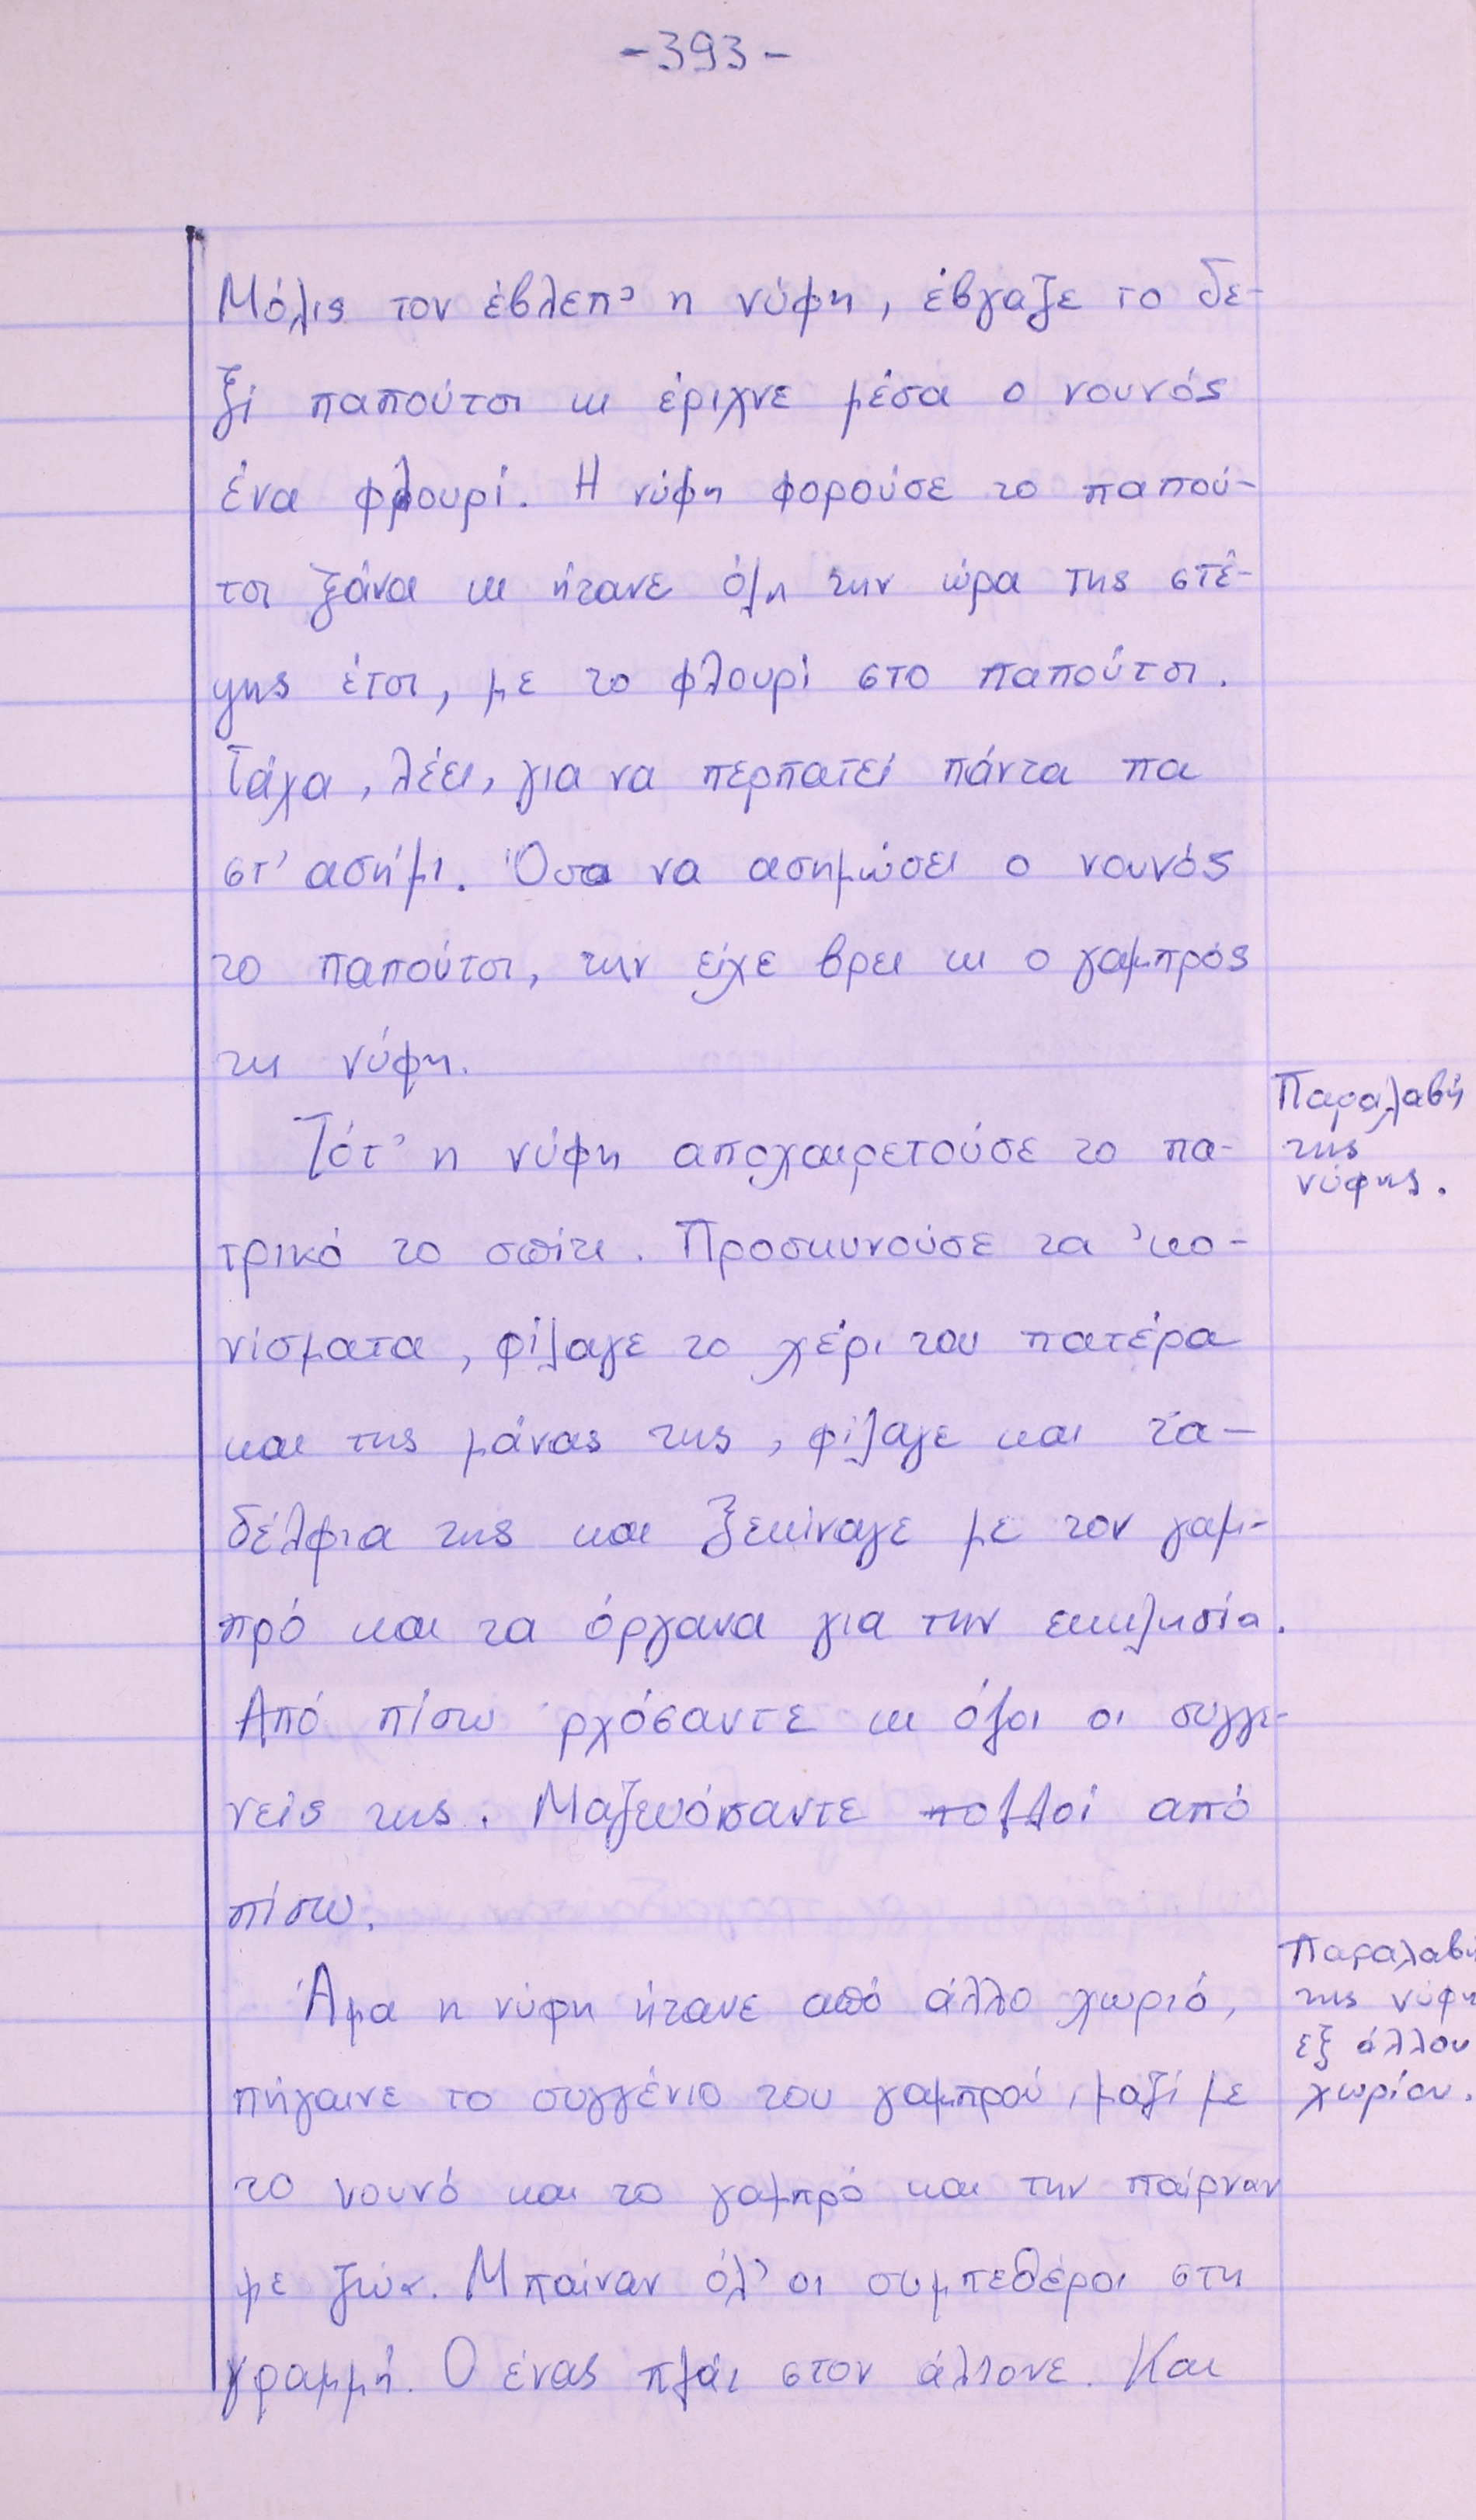 -393-
Μόλις τον έβλεπ' η νύφη, έβγαζε το δε-
ξί παπούτσι κι έριχνε μέσα ο νουνός
ένα φλουρί. Η νύφη φορούσε το παπού-
τσι ξάνα κι ήτανε όλη την ώρα της στέ-
ψης έτσι, με το φλουρί στο παπούτσι.
Τάχα, λέει, για να περπατεί πάντα πα
στ' ασήμι. Όσο να ασημώσει ο νουνός
το παπούτσι, την είχε βρει κι ο γαμπρός
τη νύφη.
Τότ' η νύφη αποχαιρετούσε το πα-
τρικό το σπίτι. Προσκυνούσε τα 'κο-
νίσματα, φίλαγε το χέρι του πατέρα
και της μάνας της, φίλαγε και τα-
δέλφια της και ξεκίναγε με τον γαμ-
πρό και τα όργανα για την εκκλησία.
Από πίσω ρχόσαντε κι όλοι οι συγγε-
νείς της. Μαζευόσαντε πολλοί από
πίσω.
Άμα η νύφη ήτανε από άλλο χωριό,
πήγαινε το συγγένιο του γαμπρού, μαζί με
το νουνό και το γαμπρό και την παίρναν
με ζώα. Μπαίναν όλ' οι συμπεθέροι στη
γραμμή. Ο ένας πλάι στον άλλονε. Και
Παραλαβή
της
νύφης.
Παραλαβή
της νύφη
εξ άλλου
χωρίου.